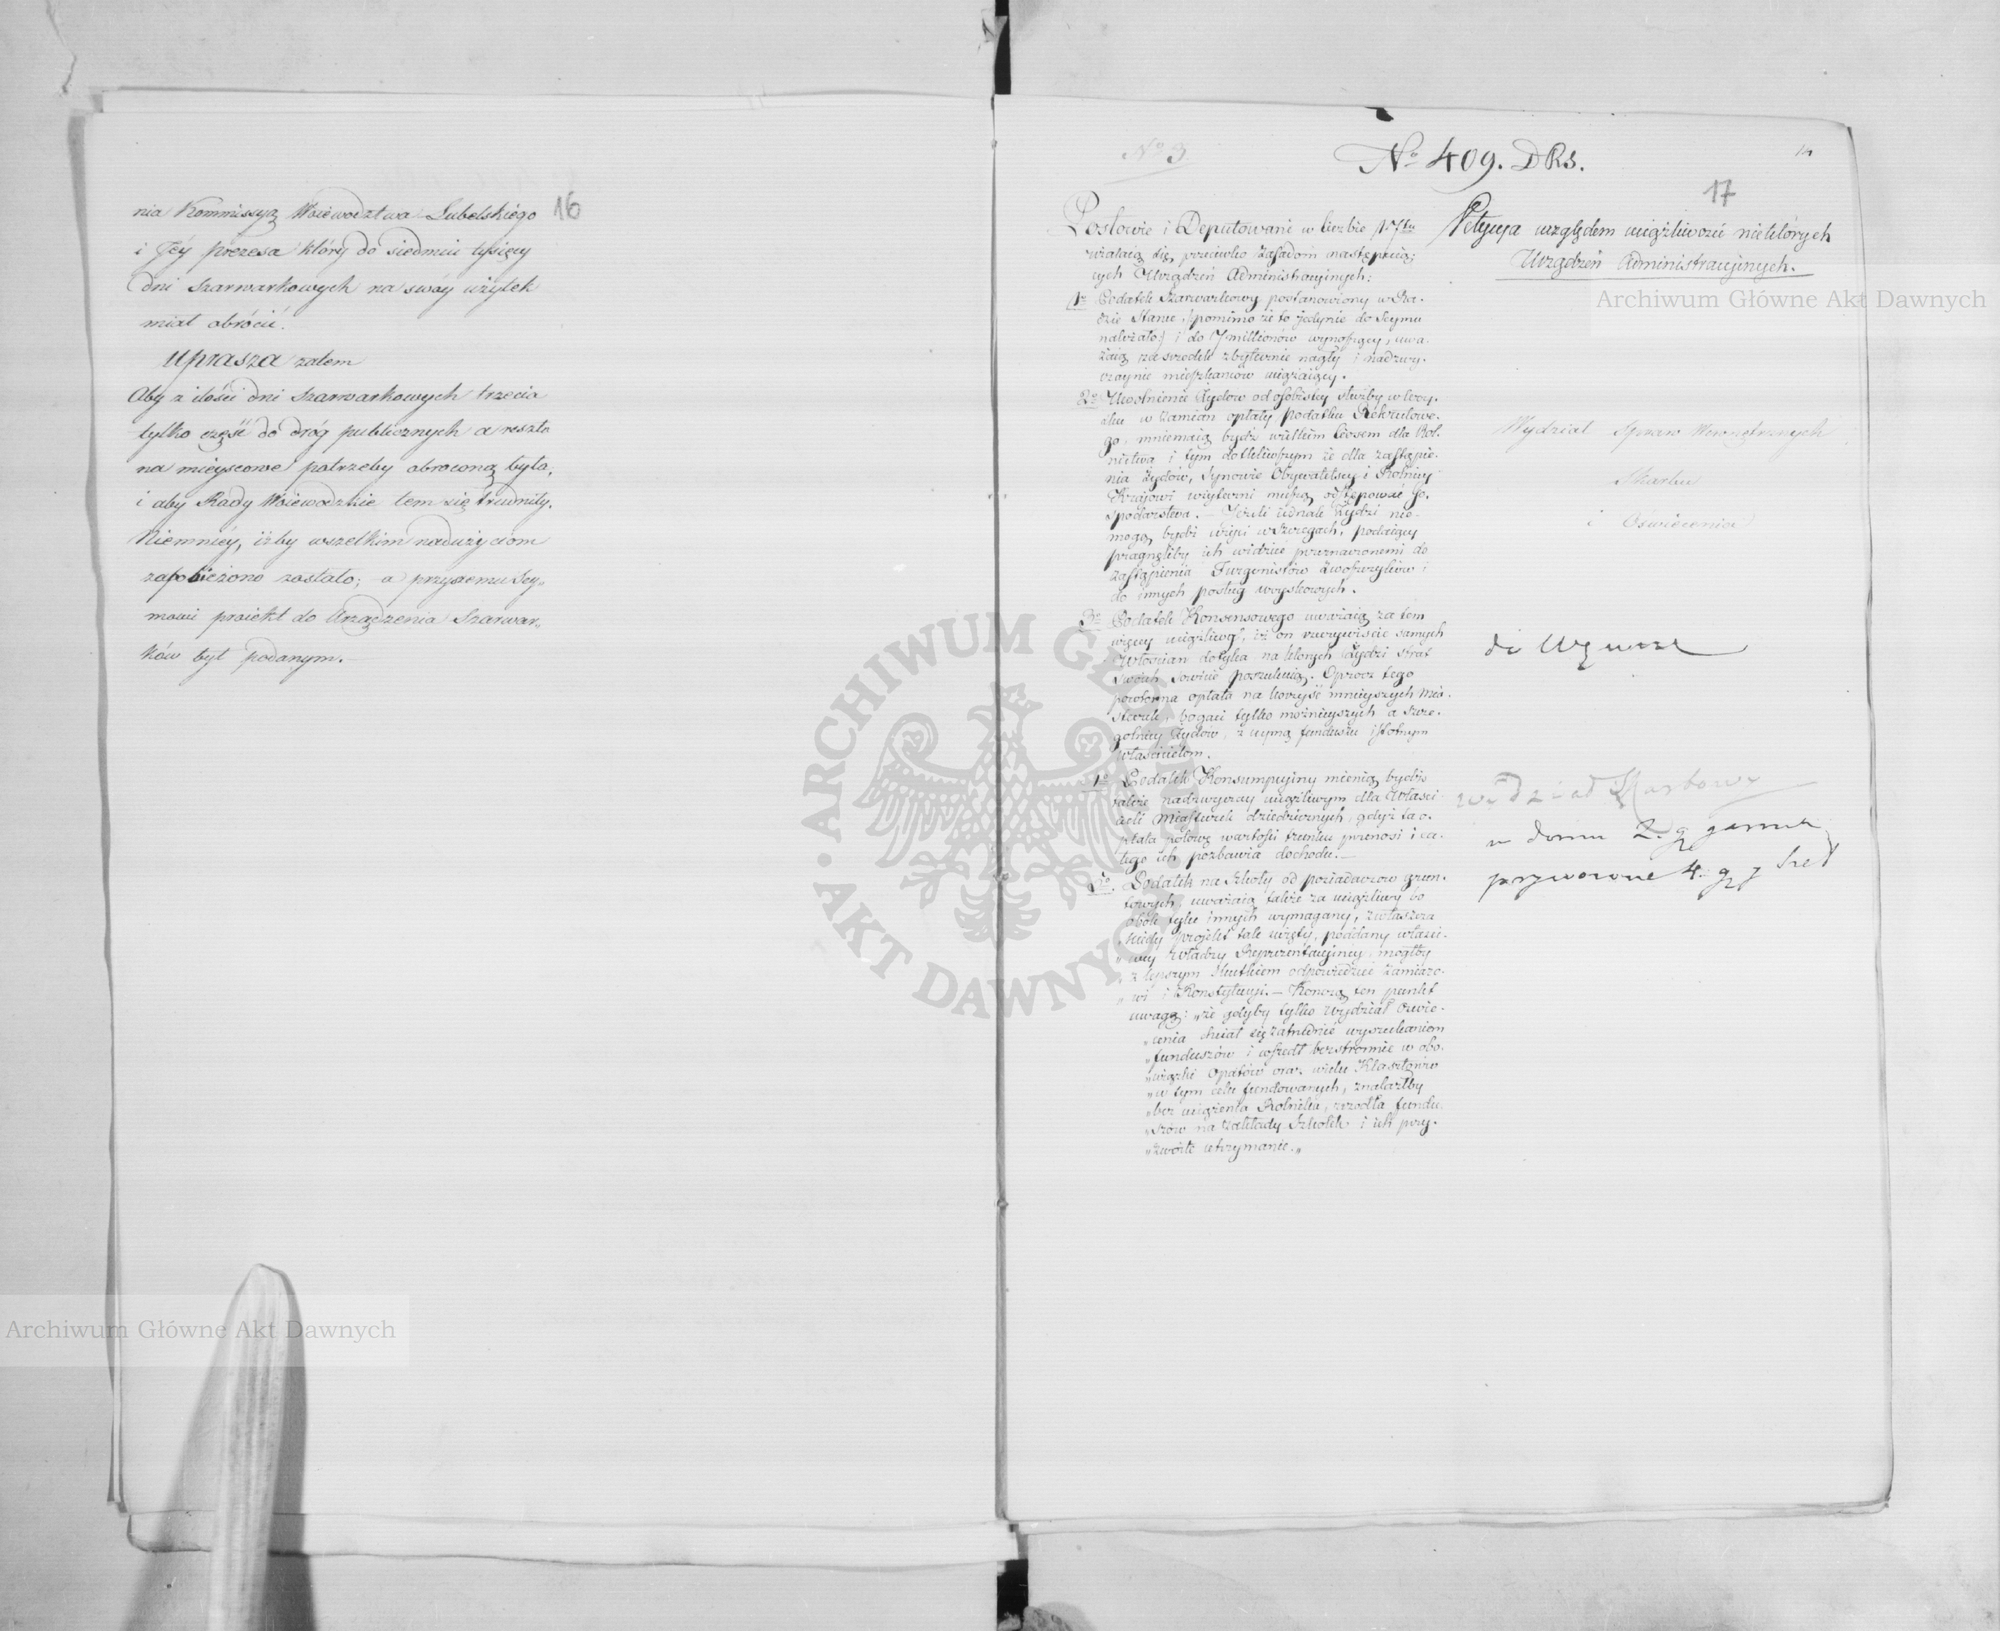 16
nia Kommissyą Woiewodztwa Lubelskiégo
i Jéy prezesa który do siedmiu tysięcy
dni Szarwarkowych na swóy użytek
miał obrócić.
Uprasza zatem
Aby z ilości dni szarwarkowych trzecia
tylko część do dróg publicznych a reszta
na mieyscowe potrzeby obroconą była,
i aby Rady Woiewodzkie tem się trudniły.
Niemniéy, iżby wszelkim nadużyciom
zapobieżono zostało; a przyszemu Sey„
mowi proiekt do Urządzenia Szarwar„
ków był podanym.—
Nº 3
Nº 409. DRS.
17
Posłowie i Deputowani w liczbie 17tu
użalaią się przeciwko zasadom następuią,
cych Urządzeń Administracyinych:
1º Podatek Szarwarkowy postanowiony w Ra-
dzie Stanu (pomimo że to jedynie do Seymu
należało) i do 7 millionów wynoszący, uwa-
żaią za srodek zbytecznie nagły i nadzwy-
czaynie mieszkańców uciążaiący.
2º Uwolnienie Żydów od osobistey służby w woy-
sku w zamian opłaty podatku Rekrutowe-
go, mniemaią bydź wielkim ciosem dla Rol-
nictwa i tym dotkliwszym że dla zastąpie-
nia Żydów, Synowie Obywatelscy i Rolnicy
Krajowi wyterni muszą odstępować go-
spodarstwa. — Jeżeli iednak Żydzi nie-
mogą bydź użyci w szeregach, podaiący
pragnęliby ich widzieć przeznaczonemi do
zastąpienia Furgonistów Zwoszczyków i
do innych posług woyskowych.
3º Podatek Konsensowego uważaią za tem
więcey uciążliwą, iż on rzeczywiscie samych
Włościan dotyka na których Żydzi strat
swoich sowicie poszukuią. Oprócz tego
powtorna opłata na korzyść mnieyszych Mia-
steczek, bogaci tylko możnieyszych a szcze-
gólniey Żydow, z uymą funduszu istotnym
właścicielom.
4º Podatek Konsumpcyiny mienią bydź
także nadzwyczay uciążliwym dla Właści-
cieli Miasteczek dziedzicznych, gdyż ta o-
płata połowę wartości trunku przenosi i ca-
łego ich pozbawia dochodu.—
5º Podatek na Szkoły od posiadaczow grun-
towych, uważaią także za uciążliwy bo
obok tylu innych wymagany, zwłaszcza
kiedy projekt tak święty, poddany właści-
wey władzy Reprezentacyiney, mogłby
z lepszym skutkiem odpowiedzieć zamiaro-
wi i Konstytucyi.— Konczą ten punkt
uwagą: „że gdyby tylko wydział Oswie-
„cenia chciał się zatrudnić wyszukaniem
„funduszów i wszedł bezstronnie w obo-
„wiązki Opatów oraz wielu Klasztorów
„w tym celu fundowanych, znalazłby
„bez uciążenia Rolnika, zrzodła fundu-
„szów na zakłady Szkółek i ich przy-
„zwoite utrzymanie.„
Petycya względem uciążliwości niektórych
Urządzeń Administracyinych.
Wydział Spraw Wewnętrznych
Skarbu
i Oświecenia
Wydział Skarbowy
w domu 2. gr garniec
przywozowe 4. gr
Archiwum Główne Akt Dawnych
Archiwum Główne Akt Dawnych
ARCHIWUM GŁÓWNE AKT DAWNYCH